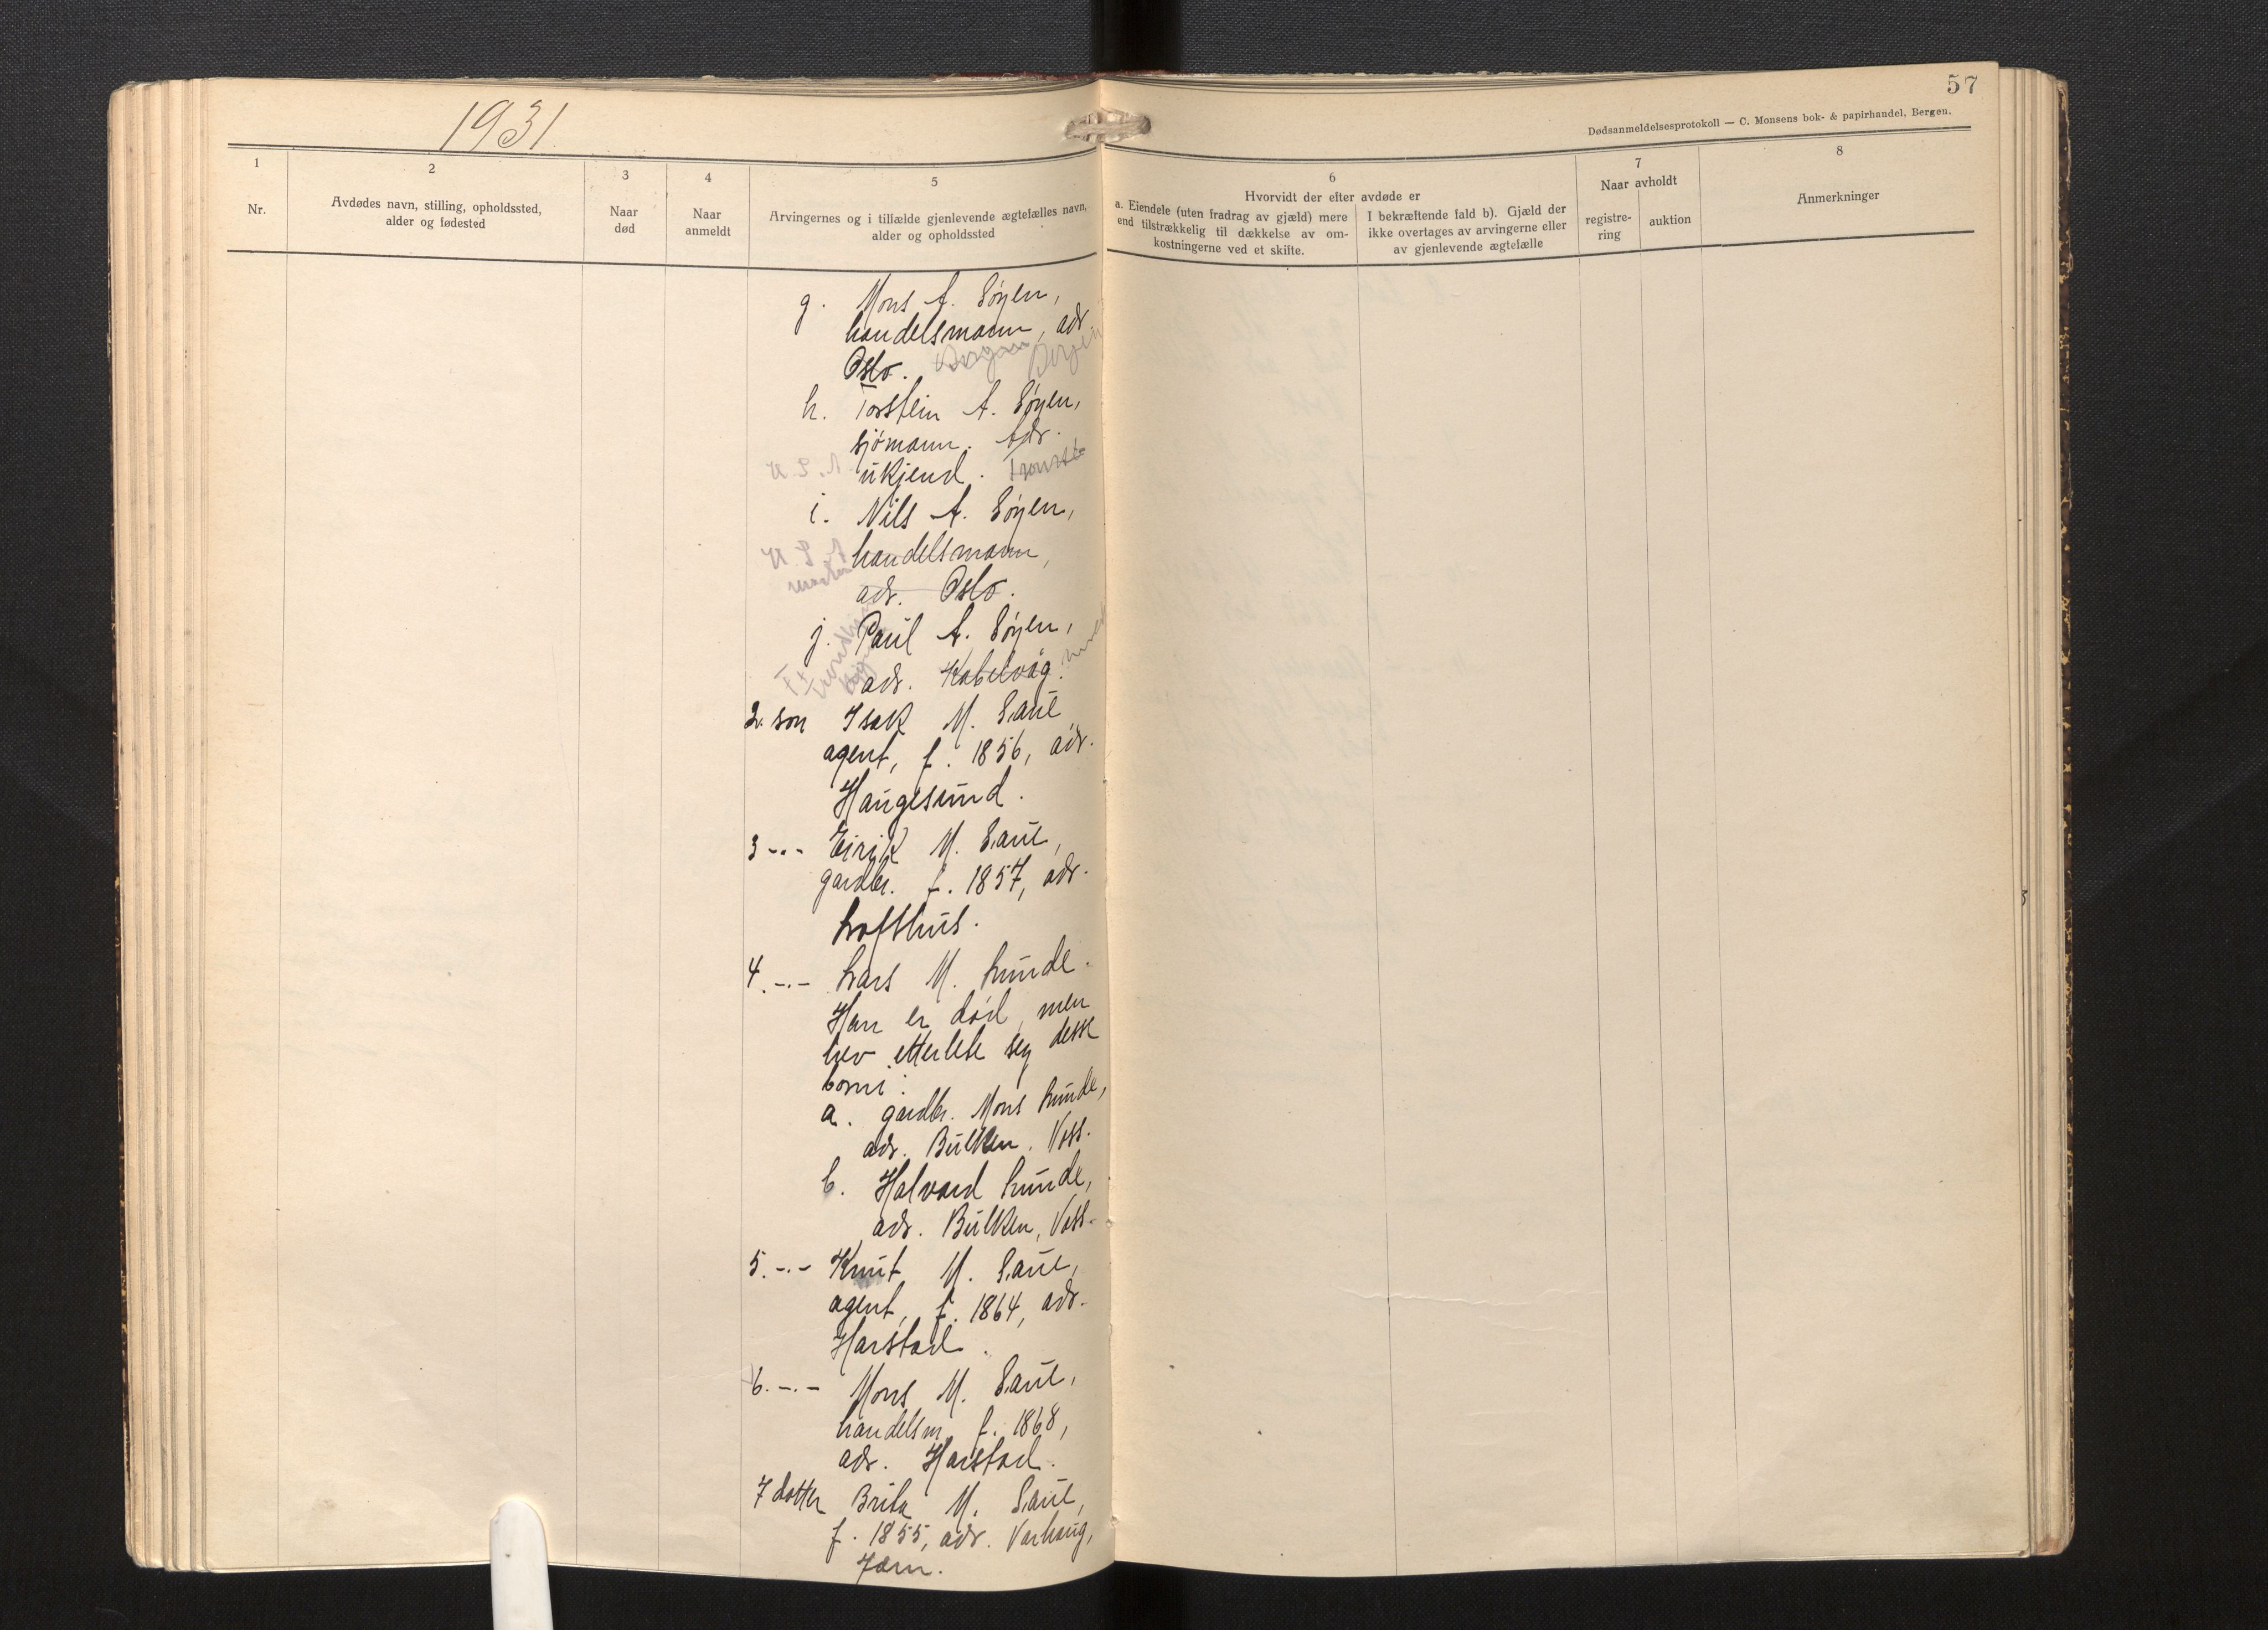 1931
57
Dødsanmeldelsesprotokoll — C. Monsens bok- & papirhandel, Bergen.
1
Nr.
2
Avdødes navn, stilling, opholdssted,
alder og fødested
3
Naar
død
4
Naar
anmeldt
5
Arvingernes og i tilfælde gjenlevende ægtefælles navn,
alder og opholdssted
6
Hvorvidt der efter avdøde er
a. Eiendele (uten fradrag av gjæld) mere
end tilstrækkelig til dækkelse av om-
kostningerne ved et skifte.
I bekræftende fald b). Gjæld der
ikke overtages av arvingerne eller
av gjenlevende ægtefælle
7
Naar avholdt
registre-
ring
auktion
8
Anmerkninger
g. Mons A. Søyen,
handelsmann, adr.
Oslo. Bergen Bergen
h. Torstein A. Søyen,
sjømann. Adr.
U.S.A. ukjend. Tromsø
i. Nils A. Søyen,
U.S.A handelsmann,
adr. Oslo.
j. Paul A. Søyen,
adr. Kabelvåg.
2. son Isak M. Saue
agent, f. 1856, adr.
Haugesund.
3 -.- Eirik M. Saue,
gardbr. f. 1857, adr.
Lofthus.
4. -.- Lars M. Lunde.
Han er død, men
hev etterlete seg desse
borni:
a. gardbr. Mons Lunde,
adr. Bulken, Voss.
b. Halvard Lunde,
adr. Bulken, Voss.
5. -.- Knut M. Saue,
agent, f. 1864, adr.
Harstad.
6. -.- Mons M. Saue,
handelsm. f. 1868,
adr. Harstad.
7 dotter Brita M. Saue,
f. 1855, adr. Varhaug,
Jærn.